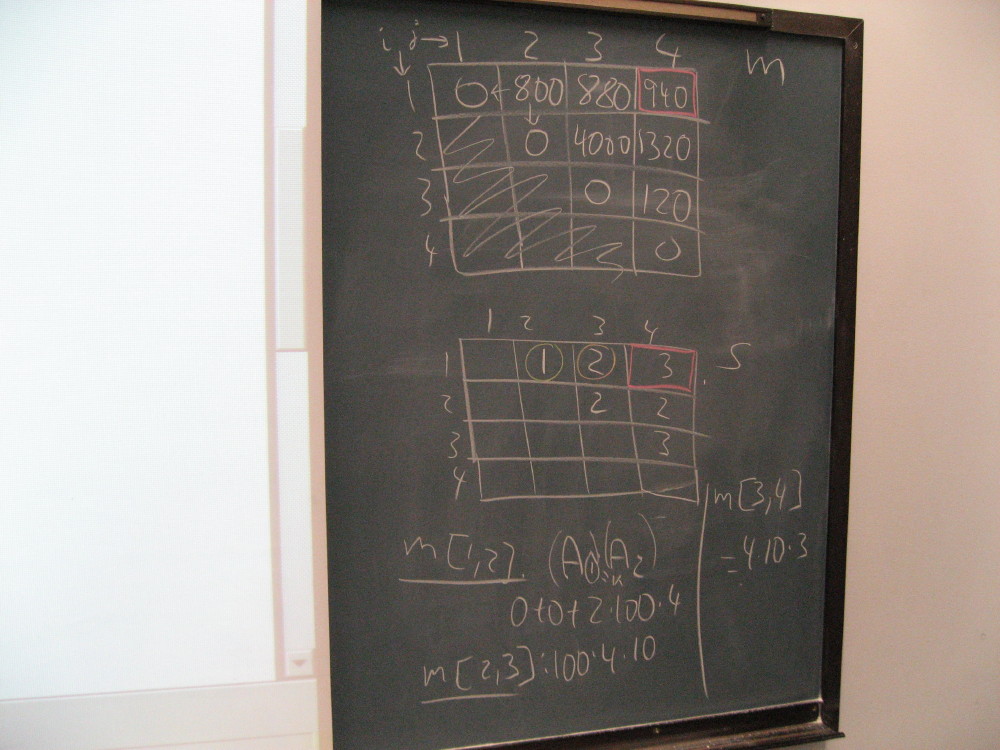 i, j → 1 2 3 4 m
1 0 ← 800 880 940
2 0 4000 1320
3 0 120
4 0
1 2 3 4
1 1 2 3 S
2 2 2
3 3
4
m[3,4]
= 4·10·3
m[1,2]. (A1)(A2)
0+0+2·100·4
m[2,3]:100·4·10